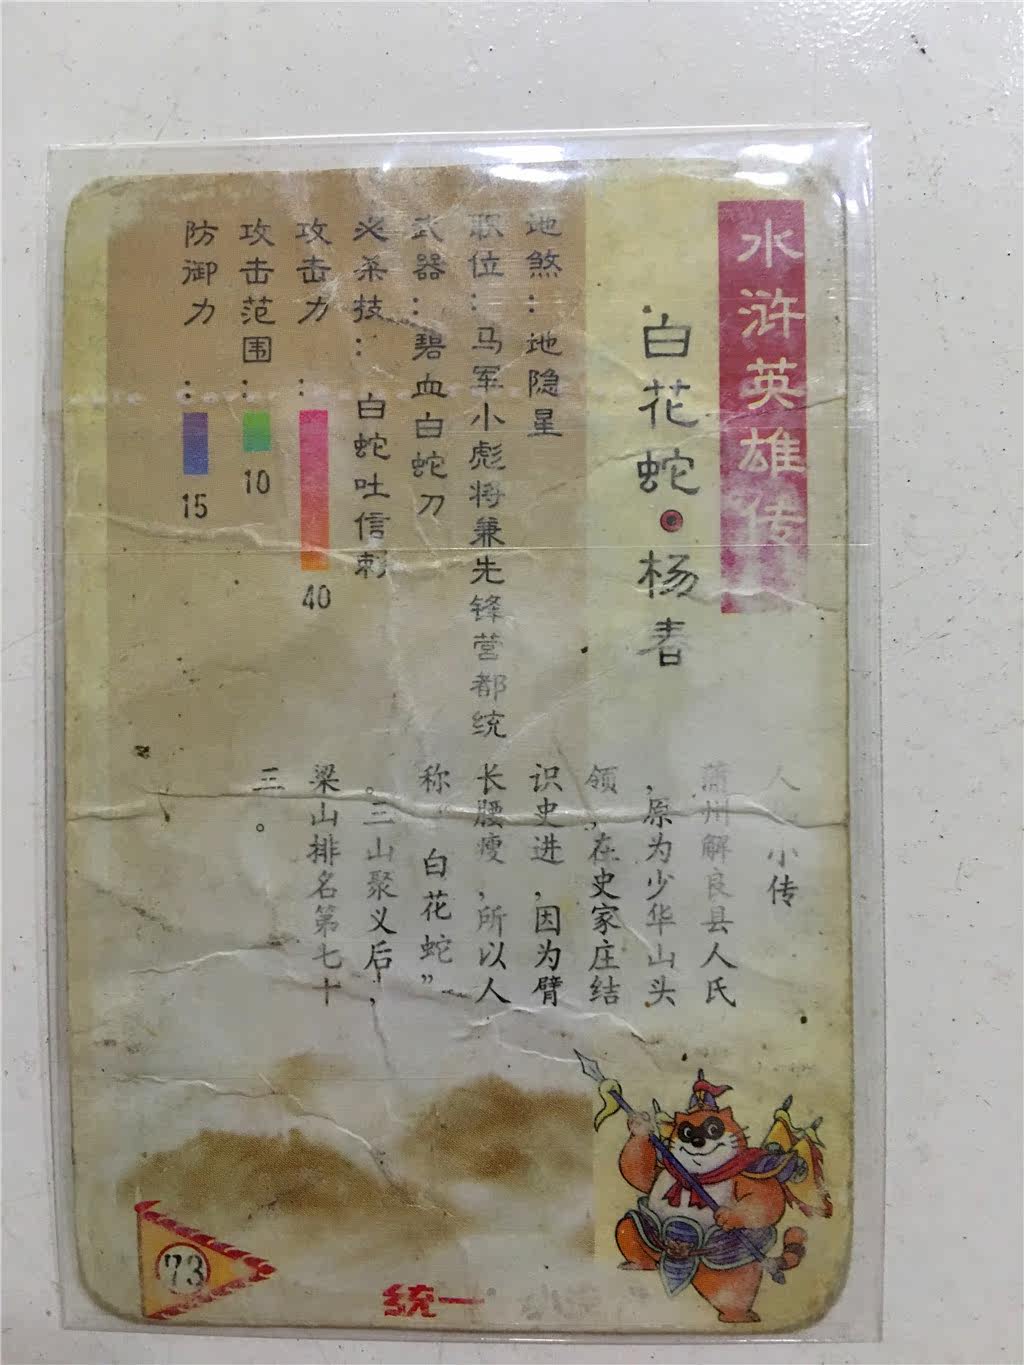 水浒英雄传
白花蛇·杨春
地煞：地隐星
职位：马军小彪将兼先锋营都统
武器：碧血白蛇刀
必杀技：白蛇吐信刺
攻击力：40
攻击范围：10
防御力：15
人 小传
蒲州解良县人氏
，原为少华山头
领，在史家庄结
识史进，因为臂
长腰瘦，所以人
称“白花蛇”
。三山聚义后，
梁山排名第七十
三。
73
统一